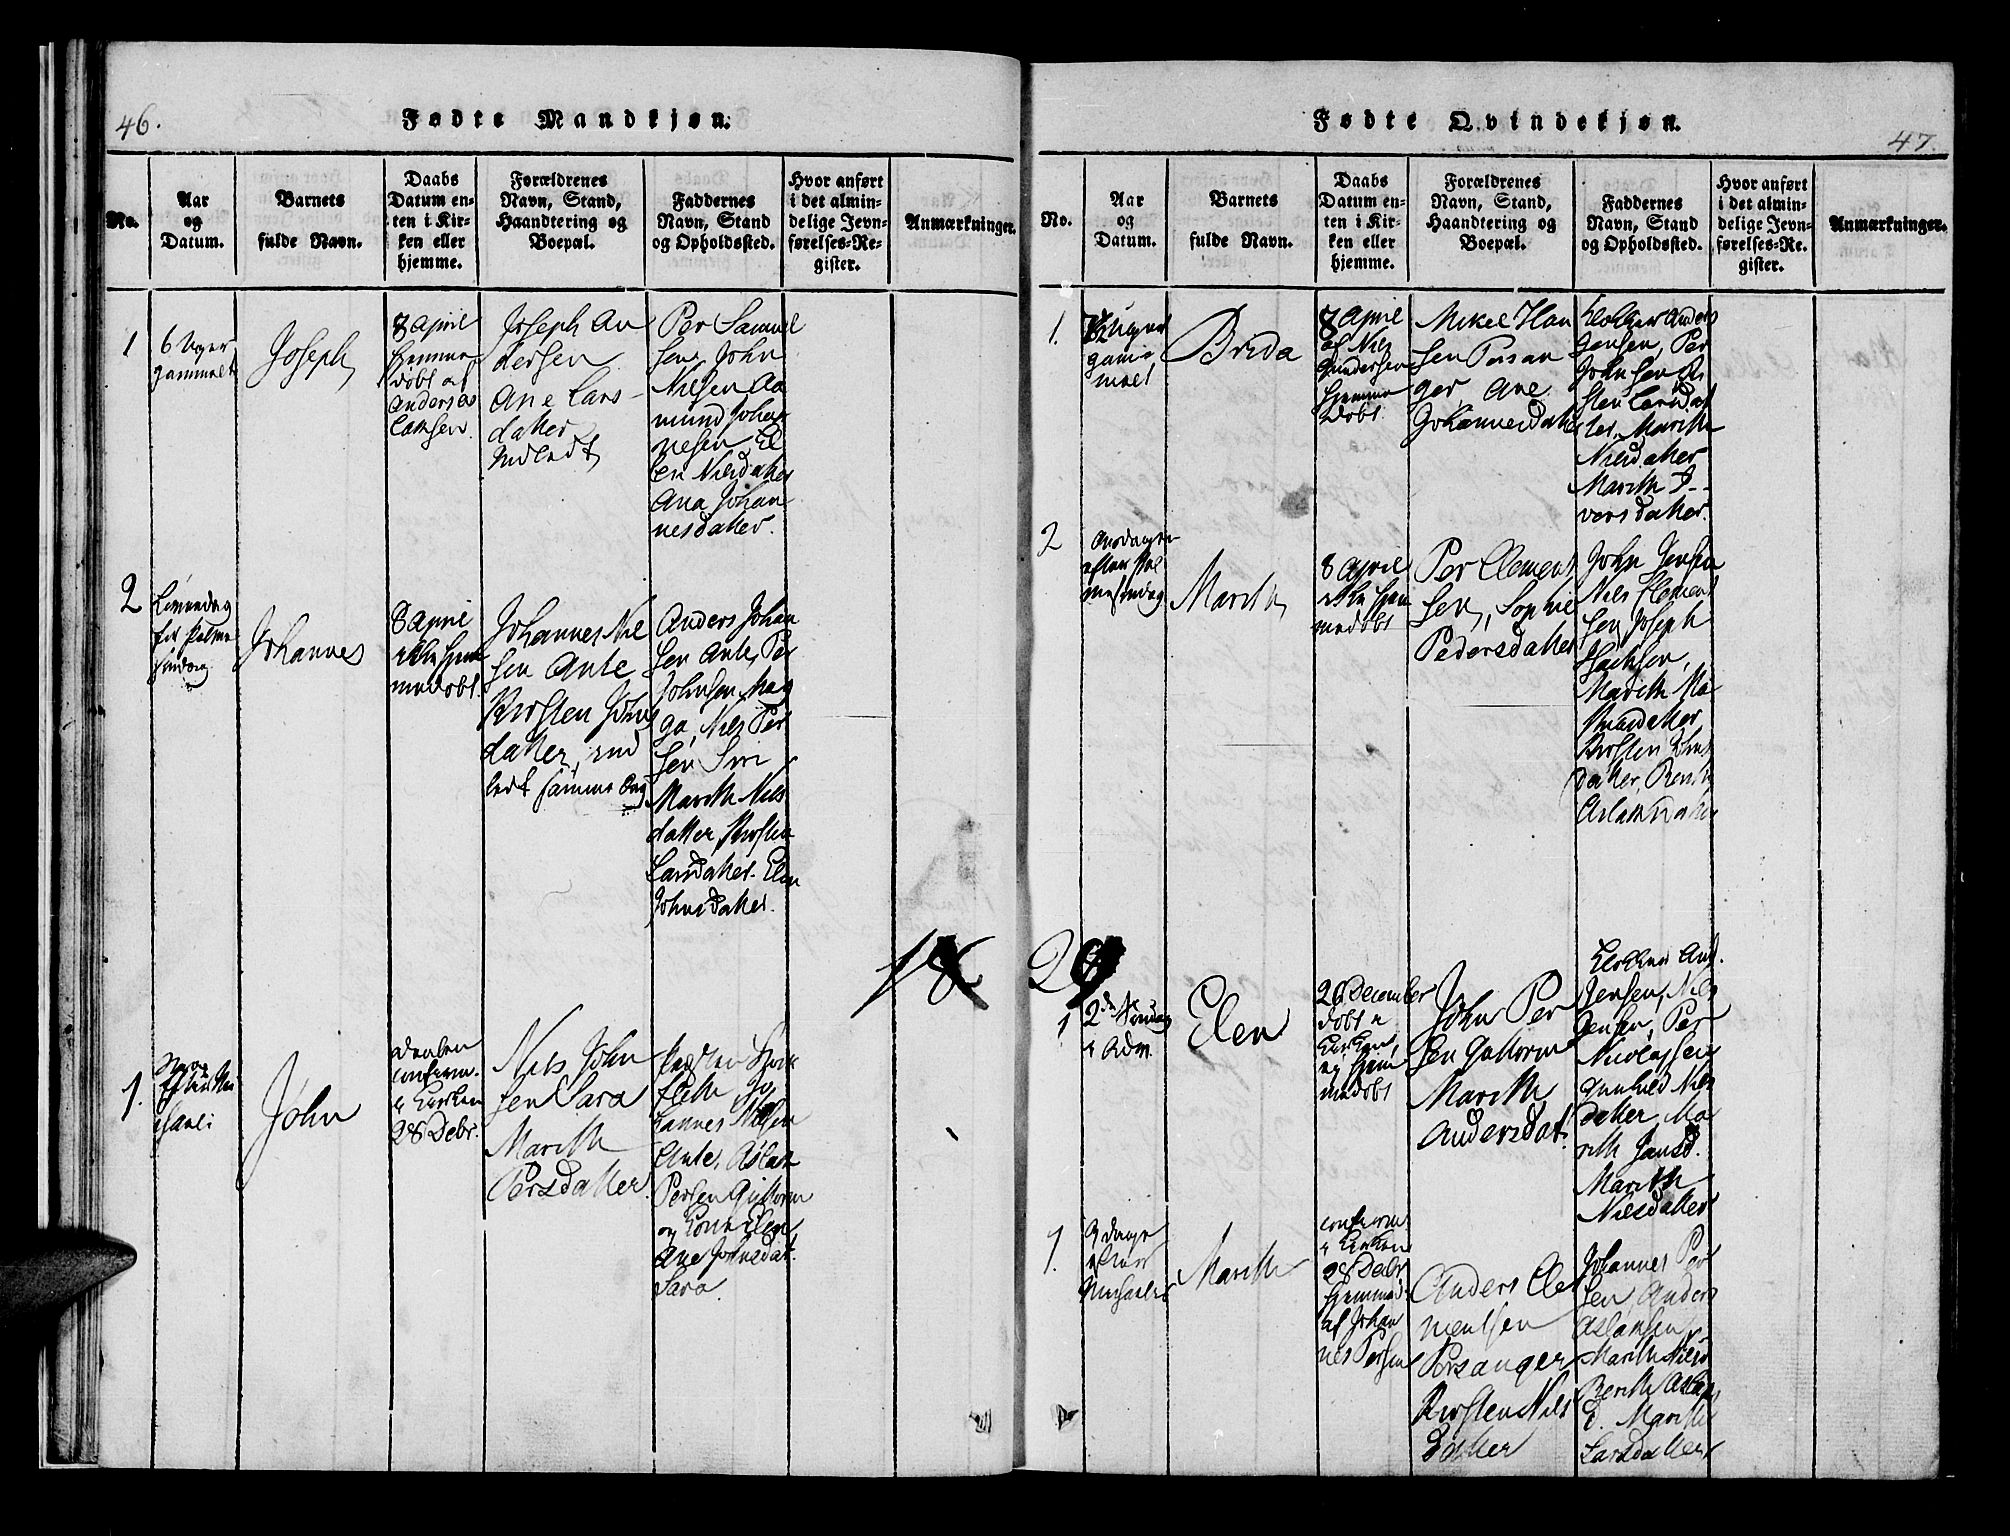 46.
Fødte Mandkjøn.
No.
Aar
og
Datum.
Barnets
fulde Navn.
Daabs
Datum en-
ten i Kir-
ken eller
hjemme.
Forældrenes
Navn, Stand,
Haandtering og
Boepæl.
Faddernes
Navn, Stand
og Opholdssted.
Hvor anført
i det almin-
delige Jevn-
førelses-Re-
gister.
Anmærkninger.
1
6 Uger
gammelt
Joseph
8 April
hjemme
døbt af
Anders As
laksen
Joseph An
dersen
Ane Lars-
datter
Indledt
Per Samuel
sen John
Nielsen Aa
mund Johan
nesen El
len Nilsdatter
Ana Johan
nesdatter.
2
Løverdag
før Palme
søndag
Johannes
8 April
hjem
medøbt
Johannes Niel
sen Ante
Kirsten Johns
datter, ind
ledt samme Dag
Anders Johan
sen Ante, Per
Johnsen Mag
ga, Niels Per
sen Siri
Marith Niels
datter Kirsten
Larsdatter. Elen
Johnsdatter.
18
1.
John
confirm.
i Kirken
28 Debr.
Nils John
sen Sara
Marith
Persdatter
hannes Nilsen
Ante, Aslak
Persen Guttorm
og Kone Elen
Ane Johnsdat.
Sara
47.
Fødte Qvindekjøn.
No.
Aar
og
Datum.
Barnets
fulde Navn.
Daabs
Datum en-
ten i Kir-
ken eller
hjemme.
Forældrenes
Navn, Stand,
Haandtering og
Boepæl.
Faddernes
Navn, Stand
og Opholdssted.
Hvor anført
i det almin-
delige Jevn-
førelses-Re-
gister.
Anmærkninger.
1.
Uger
gam
melt
Brita
8 April
af Niels
Gundersen
hjemme
døbt
Mikel Han
sen Porsan
ger, Ane
Johannesdatter
Klokker Anders
Jensen, Per
Johnsen Kir
sten Larsdat
ter, Marith
Nielsdatter
Marith I-
versdatter.
2
Onsdagen
efter Pal
mesøndag
Marith
8 April
hjem
medøbt
Per Clement
sen, Sophie
Pedersdatter
John Jensen
Niels Clement
sen Joseph
Isachsen,
Marith Ma
thisdatter
Kirsten Johns
datter, Berith
Aslaksdatter
29
1
2den Søndag
i Adv.
Elen
26 December
døbt i
Kirken
og hjem
medøbt
John Per
sen Guttorm
Marith
Andersdat.
Klokker And.
Jensen, Niels
Jensen, Per
Nicolassen
Gunhild Niels
datter Ma
rith Jansd.
Marith
Nielsdatter
1.
9 dage
efter
Michaelis
Marith
confirm
i Kirken
28 Debr
hjemmed.
af Johan
nes Persen
Anders Cle
mentsen
Porsanger
Kirsten Niels
datter
Johannes Per
sen Anders
Aslaksen
Marith Nielsd
Berith Aslaks
d. Marith
Larsdatter